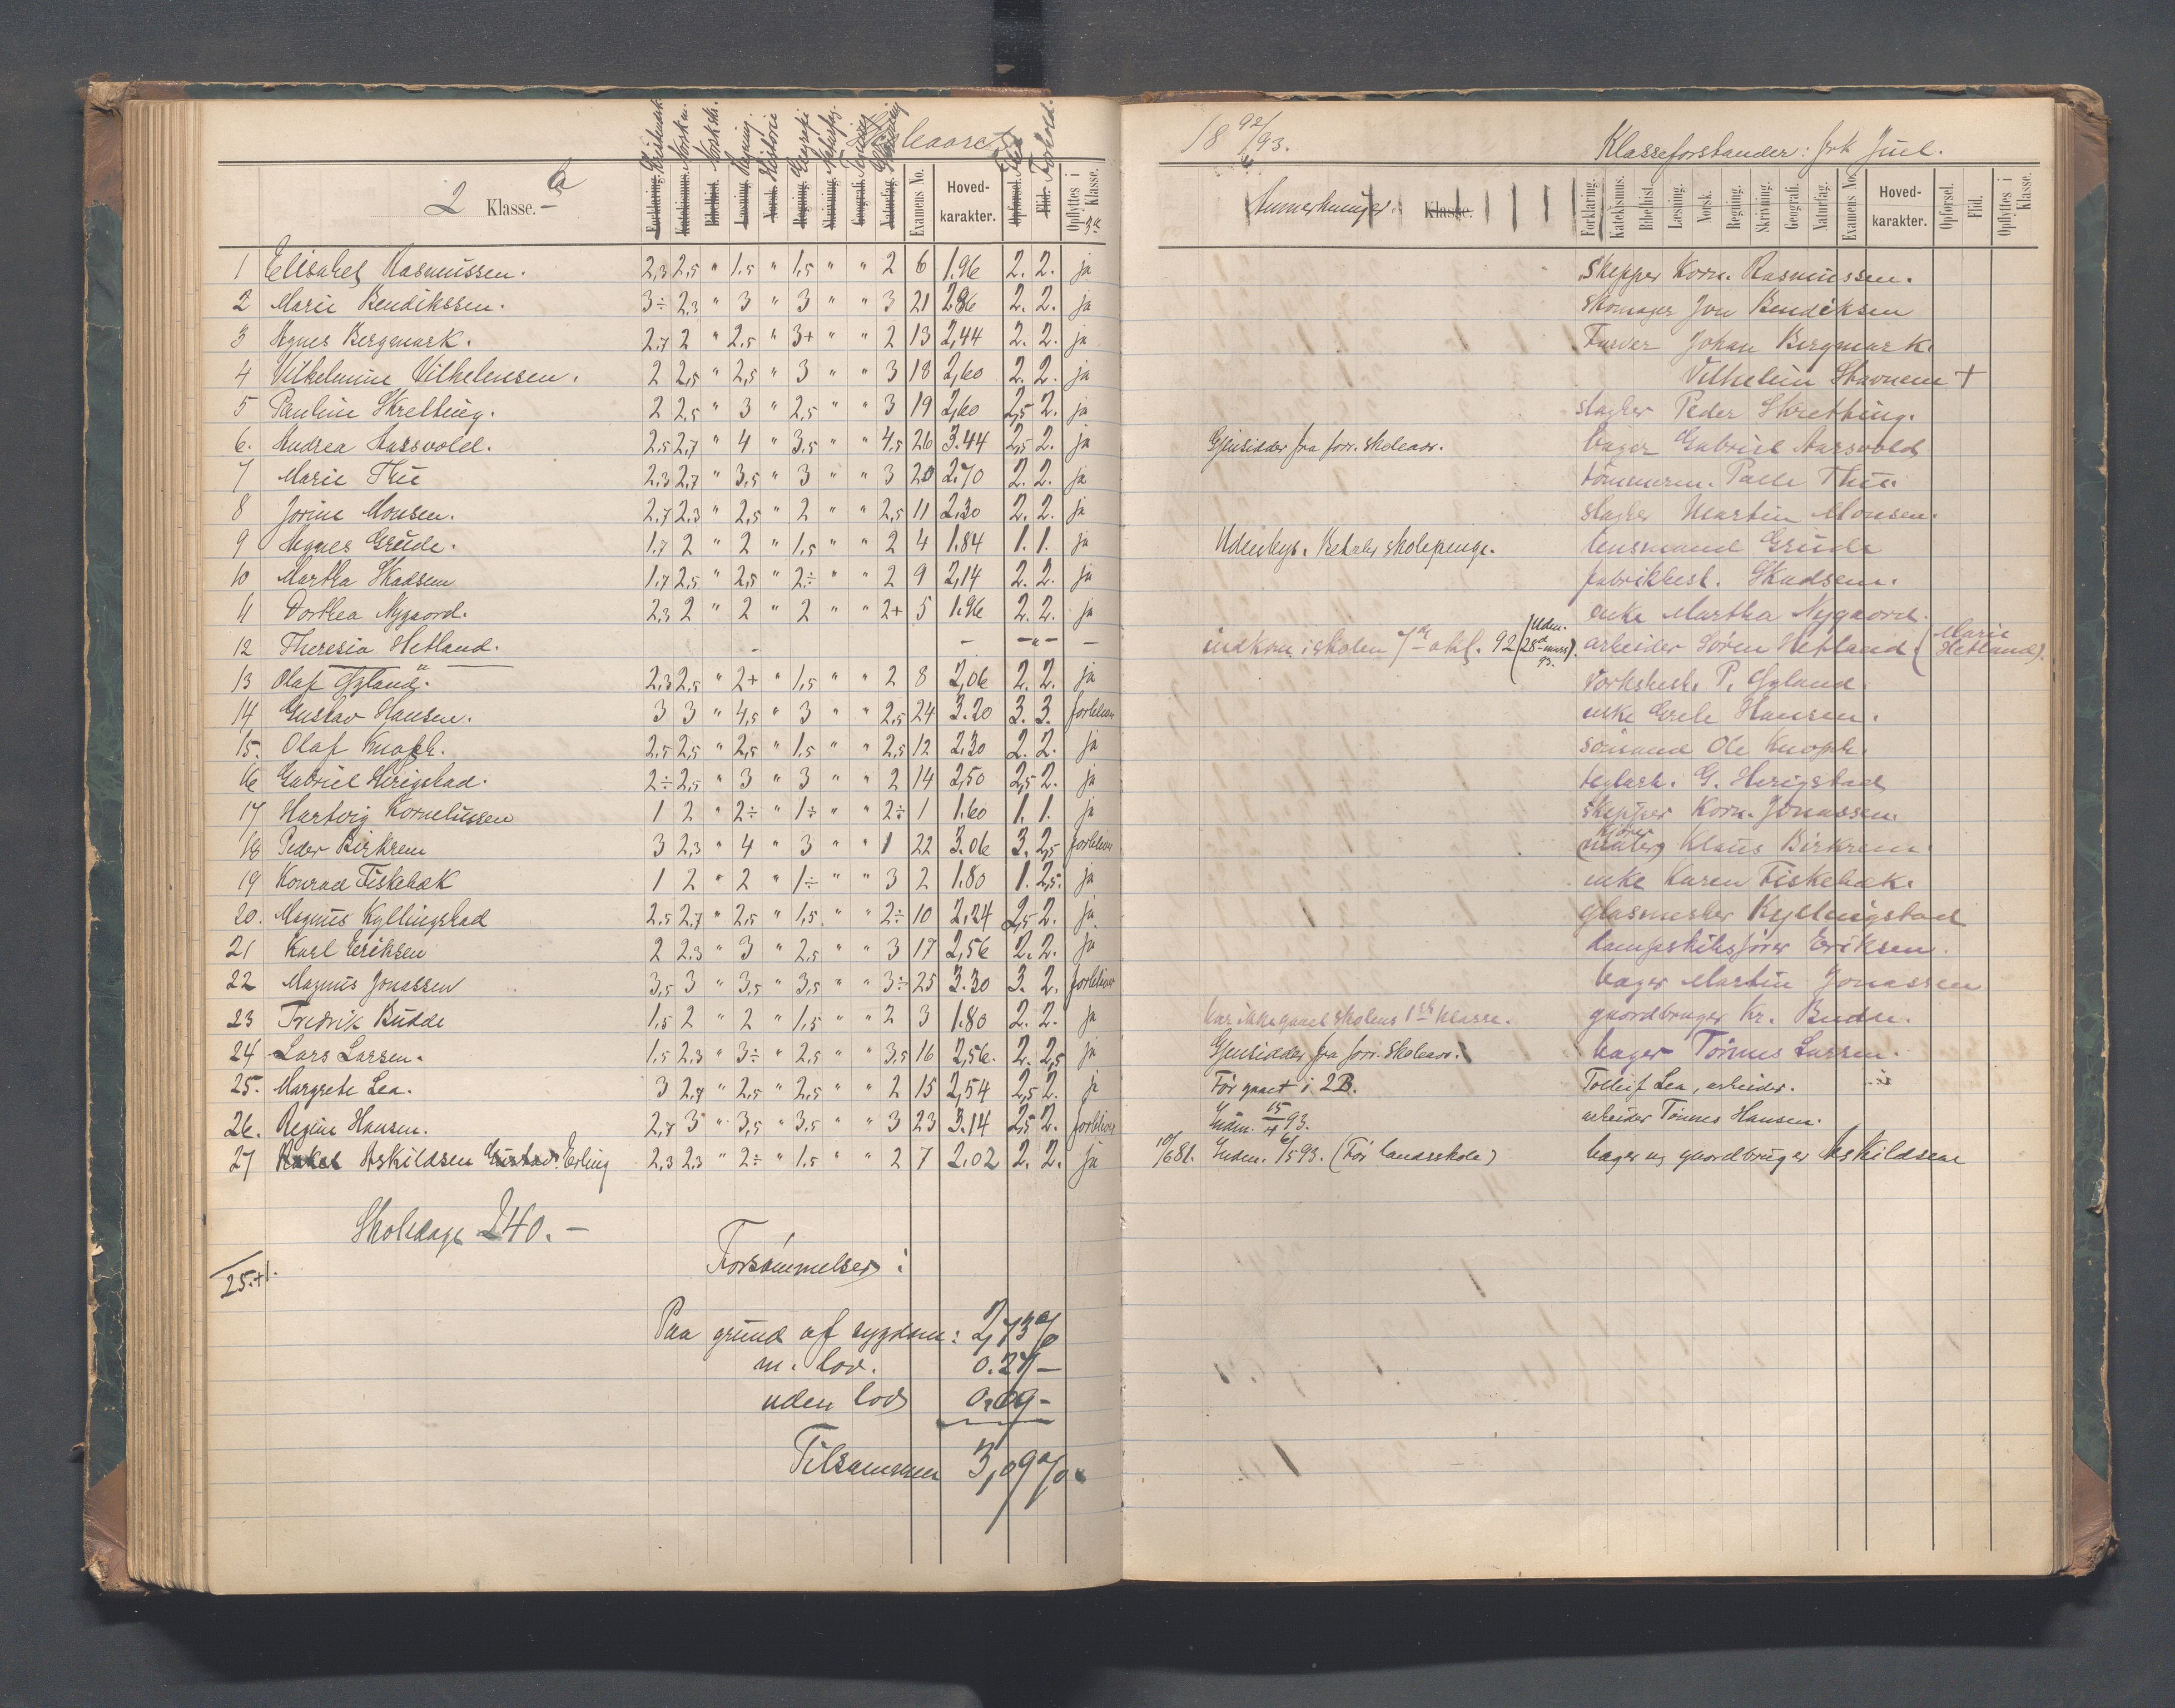 Skoleaaret
2 Klasse. b
Kristendk. Norsk m. Norsk sk. Regning. Historie Geografi Naturfag. Tegning Skrivning Flid Forhold.
Forklaring. Katekismus. Bibelhist. Læsning. Norsk. Regning. Skrivning. Geografi. Naturfag. Examens No. Hoved-karakter. Opførsel. Flid. Opflyttes i 3die Klasse.
1 Elisabet Rasmussen. 2,3 2,5 " 1,5 " 1,5 " " 2 6 1.96 2. 2. ja
2 Marie Bendikssen. 3÷ 2,3 " 3 " 3 " " 3 21 2.86 2. 2. ja
3 Agnes Bergmark. 2,7 2 " 2,5 " 3+ " " 2 13 2,44 2. 2. ja
4 Vilhelmine Vilhelmsen. 2 2,5 " 2,5 " 3 " " 3 18 2,60 2. 2. ja
5 Pauline Skretting. 2 2,5 " 3 " 2,5 " " 3 19 2,60 2,5 2. ja
6. Andrea Aarsvold. 2,5 2,7 " 4 " 3,5 " " 4,5 26 3.44 2,5 2. ja
7 Marie Thu 2,3 2,7 " 3,5 " 3 " " 3 20 2.70 2. 2. ja
8 Jorine Monsen. 2,7 2,3 " 2,5 " 2 " " 2,5 11 2.30 2. 2. ja
9 Agnes Grude. 1,7 2 " 2 " 1,5 " " 2 4 1.84 1. 1. ja
10 Martha Skadsem 1,7 2,5 " 2,5 " 2÷ " " 2 9 2,14 2. 2. ja
11 Dorthea Nygaard. 2,3 2 " 2 " 2 " " 2+ 5 1.96 2. 2. ja
12 Theresia Hetland. - - -"- -
13 Olaf Gyland. 2,3 2,5 " 2+ " 1,5 " " 2 8 2,06 2. 2. ja
14 Gustav Hansen. 3 3 " 4,5 " 3 " " 2,5 24 3.20 3. 3. forbliver
15. Olaf Knoph. 2,5 2,5 " 2,5 " 1,5 " " 2,5 12 2.30 2. 2. ja
16 Gabriel Herigstad. 2÷ 2,5 " 3 " 3 " " 2 14 2,50 2,5 2. ja
17 Hartvig Korneliussen 1 2 " 2÷ " 1÷ " " 2÷ 1 1.60 1. 1. ja
18 Peder Birkrem 3 2,3 " 4 " 3 " " 1 22 3.06 3. 2,5 forbliver
19 Konrad Fiskebæk 1 2 " 2 " 1÷ " " 3 2 1.80 1. 2,5. ja
20. Magnus Kyllingstad 2,5 2,7 " 2,5 " 1,5 " " 2÷ 10 2,24 2,5 2. ja
21 Karl Eriksen 2 2.3 " 3 " 2,5 " " 3 17 2,56 2. 2. ja
22 Magnus Jonassen 3,5 3 " 3,5 " 3,5 " " 3÷ 25 3.30 3. 2. forbliver
23 Fredrik Budde 1.5 2 " 2 " 1,5 " " 2 3 1.80 2. 2. ja
24 Lars Larsen. 1,5 2.3 " 3÷ " 2,5 " " 3,5 16 2,56. 2. 2,5 ja
25. Margrete Lea. 3 2,7 " 2,5 " 2,5 " " 2 15 2,54 2,5 2. ja
26. Regine Hansen. 2,7 3 " 3,5 " 3,5 " " 3 23 3.14 2,5 2. forbliver
27 Askildsen Gustav Erling 2,3 2,3 " 2÷ " 1,5 " " 2 7 2.02 2. 2. ja
Skoledage 240.-
25.+1.
Forsømmelser:
Paa grund af sygdom: 2,73%
m. lov. 0.27-
uden lov 0.09-
Tilsammen 3,09%
18 92/93.
Klasseforstander: frk Juel.
Anmerkninger. Klasse.
Forklaring. Katekismus. Bibelhist. Læsning. Norsk. Regning. Skrivning. Geografi. Naturfag. Examens No. Hoved-karakter. Opførsel. Flid. Opflyttes i Klasse.
Skipper Korn. Rasmussen.
Skomager Jon Bendiksen
Farver Johan Bergmark.
Vilhelm Stavnem +
slagter Peder Skretting.
Gjensidder fra forr. skoleaar. bager Gabriel Aarsvold
tømmerm. Palle Thu.
slagter Martin Monsen.
Udenbys. Betaler skolepenge. lensmand Grude
fabrikbest. Skadsem.
enke Martha Nygaard.
indkom i skolen 7de okt. 92 (Udm. 28d mars 93). arbeider Søren Hetland. (Marie Hetland).
Verksbest. P. Gyland.
enke Grete Hansen.
sømand Ole Knoph.
G. Herigstad
Skipper Korn. Jonassen.
kjører (maler) Klaus Birkrem.
enke Karen Fiskebæk.
glasmester Kyllingstad
dampskibsfører Eriksen.
bager Martin Jonassen
har ikke gaaet skolens 1ste klasse. gaardbruger Kr. Budde.
Gjensidder fra forr. skoleaar. bager Tönnes Larsen.
Før gaaet i 2B. Tolleif Lea, arbeider.
Indm. 15/4 93. arbeider Tønnes Hansen.
10/6 81. Indm. 6/5 93. (Før landsskole) bager og gaardbruger Askildsen